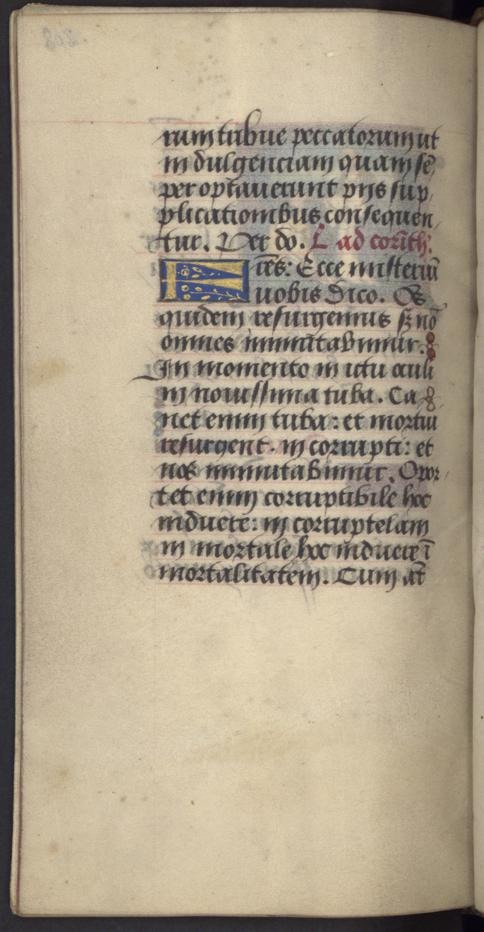 rum tribue peccatorum ut
in dulgenciam quam sē
per optauerunt pijs sup
plicationibus consequen
tur. Per dō. L ad corīth:
F rēs: Ecce misteriū
uobis dico. Os
quidem resurgemus sz nō
omnes inmutabimur.
In momento in ictu oculi
in nouissima tuba. Ca
net enim tuba: et mortui
resurgent. in corrupti: et
nos inmutabimur. Opor
tet enim corruptibile hoc
induere: in corruptelam
in mortale hoc induere ī
mortalitatem. Cum aūt